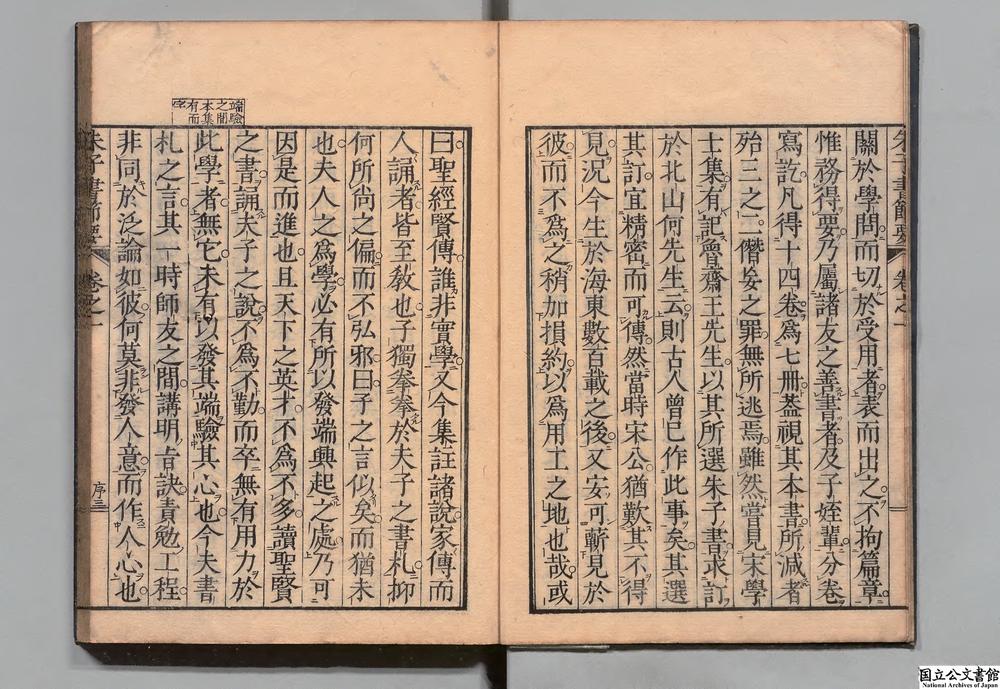 關於學問而切於受用者表而出之不拘篇章
惟務得要乃屬諸友之善書者及子姪輩分卷
寫訖凡得十四卷爲七冊盖視其本書所減者
殆三之二僭妄之罪無所逃焉雖然嘗見宋學
士集有記魯齋王先生以其所選朱子書求訂
於北山何先生云則古人曾已作此事矣其選
其訂宜精密而可傳然當時宋公猶歎其不得
見況今生於海東數百載之後又安可蘄見於
彼而不爲之稍加損約以爲用工之地也哉或
曰聖經賢傳誰非實學又今集註諸說家傳而
人誦者皆至教也子獨拳拳於夫子之書札抑
何所尚之偏而不弘邪曰子之言似矣而猶未
也夫人之爲學必有所以發端興起之處乃可
因是而進也且天下之英才不爲不多讀聖賢
之書誦夫子之說不爲不勤而卒無有用力於
此學者無它未有以發其端驗其心也今夫書
札之言其一時師友之間講明旨訣責勉工程
非同於泛論如彼何莫非發人意而作人心也
端驗
之間
本集
有而
字
朱子書節要
卷之一
序三
朱子書節要
卷之一
国立公文書館
National Archives of Japan